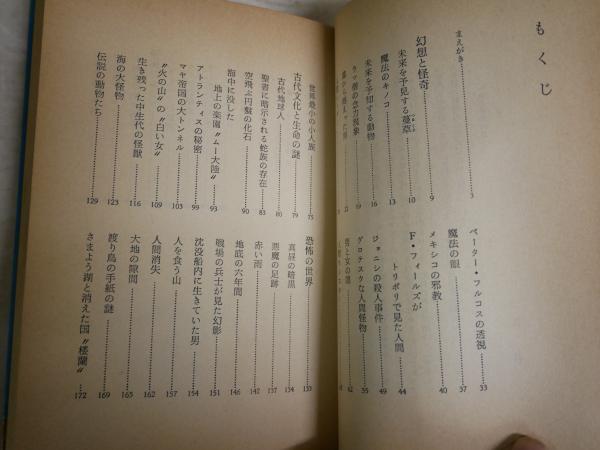 もくじ
まえがき 3
幻想と怪奇 9
未来を予見する蔓草 10
魔法のキノコ 13
未来を予知する動物 16
19
21
ペーター・フルコスの透視 33
魔法の眼 37
メキシコの邪教 40
F・フィールズが
トリポリで見た人間 44
ジョニンの殺人事件 49
グロテスクな人間怪物 55
62
世界最小の小人族 75
古代文化と生命の謎 79
古代地球人 80
聖書に暗示される蛇族の存在 83
空飛ぶ円盤の化石 90
海中に没した
地上の楽園〝ムー大陸〟 93
アトランティスの秘密 99
マヤ帝国の大トンネル 103
〝火の山〟の〝白い女〟 109
生き残った中生代の怪獣 116
海の大怪物 123
伝説の動物たち 129
恐怖の世界 133
真昼の暗黒 134
悪魔の足跡 137
赤い雨 142
地底の六年間 146
戦場の兵士が見た幻影 151
沈没船内に生きていた男 154
人を食う山 157
人間消失 162
大地の隙間 165
渡り鳥の手紙の謎 169
さまよう湖と消えた国〝楼蘭〟 172